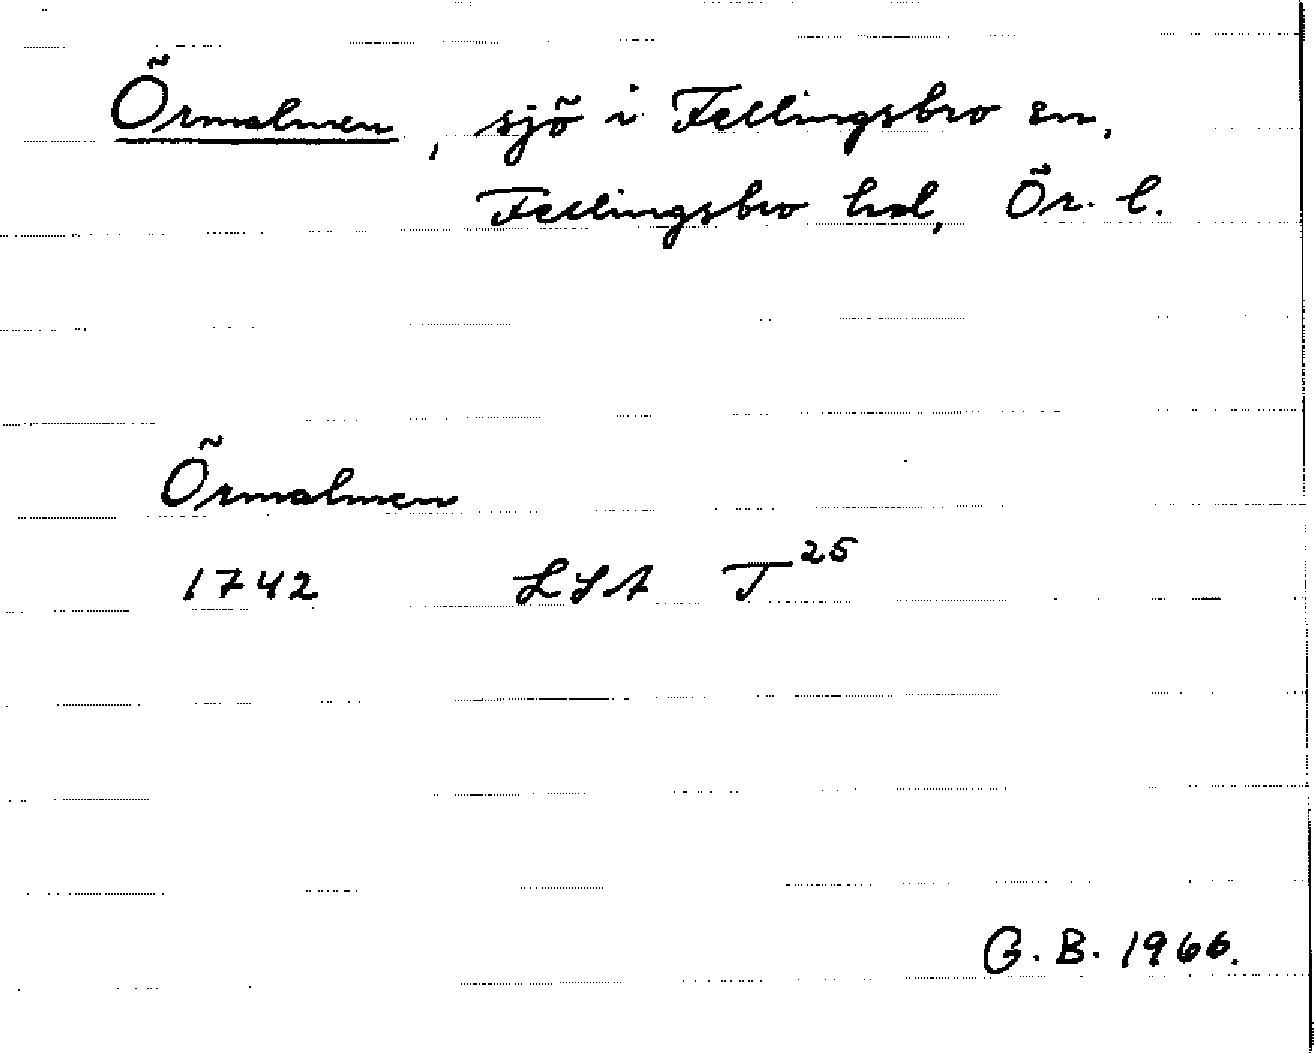 Örmalmen, sjö i Fellingsbro sn,
Fellingsbro hd, Ör. l.
Örmalmen
1742 LSA T 25
G. B. 1966.